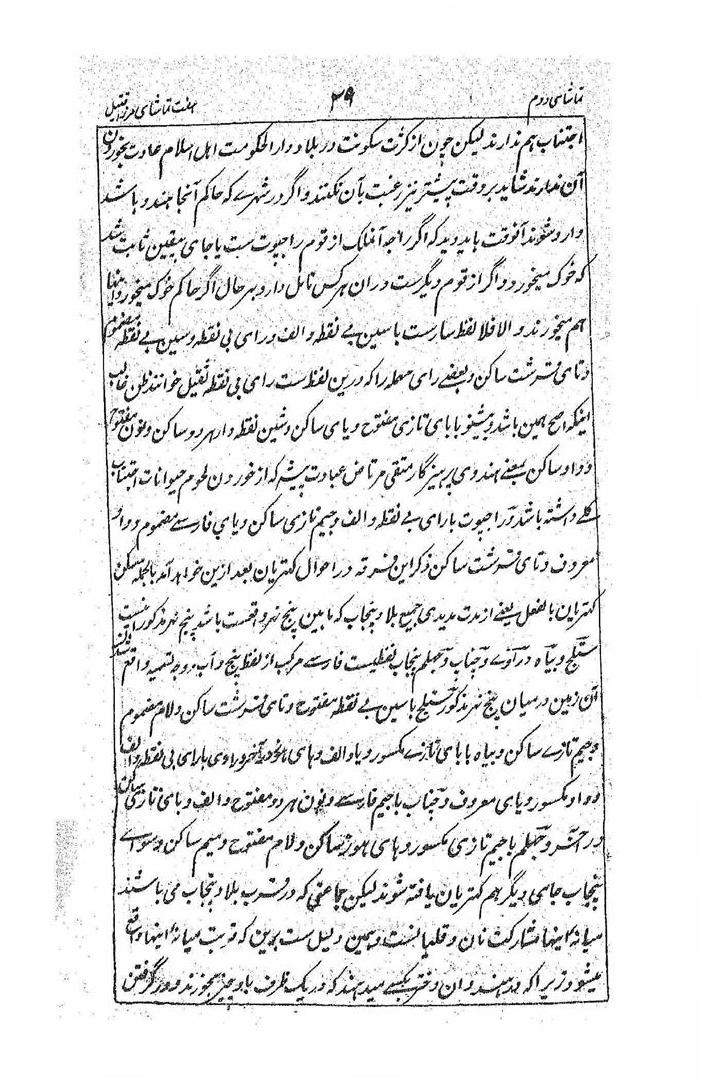 تماشای دوم
۲۹
هفت تماشای مرزا قتیل
اجتناب هم ندارند لیکن چون از کثرت سکونت در بلاد دار الحکومت اهل اسلام عادت بخوردن
آن ندارند شاید بر وقت پیشتر نیز رغبت بآن نکنند و اگر در شهرے که حاکم آنجا هندو باشد
وارد شوند آنوقت باید دید که اگر راجه آنملک از قوم راجپوت ست یا جای یقین ثابت شد
که خوک میخورد و اگر از قوم دیگرست دران هر کس تامل دارد بهر حال اگر حاکم خوک میخورد اینها
هم میخورند و الا فلا لفظ سارست با سین بے نقطه و الف و رای بی نقطه و سین بے نقطه مضموم
و تای قرشت ساکن و بعضے رای مهمله را که درین لفظ ست رای بی نقطه ثقیل خوانند ظن غالب
اینکه اصح همین باشد و بیشنو با بای تازی مفتوح و یای ساکن و شین نقطه دار هر دو ساکن و نون مفتوح
و واو ساکن بمعنے هندوی پرهیزگار متقی مرتاض عبادت پیشه که از خوردن لحوم حیوانات اجتناب
کلے داشته باشد و راجپوت با رای بے نقطه و الف و جیم تازی ساکن و یای فارسے مضموم و واو
معروف و تای قرشت ساکن ذکر این فرقه در احوال کهتریان بعد ازین خواهد آمد بالجمله مسکن
کهتریان بالفعل یعنے از مدت مدیدی جمیع بلاد پنجاب که ما بین پنج نهر واقعست باشد پنج نهر مذکور اینست
ستلج و بیاه و راوے و چناب و جهلم پنجاب لفظیست فارسے مرکب از لفظ پنج و آب وجه تسمیه واقع شدن
آن زمین درمیان پنج نهر مذکور ستلج با سین بے نقطه مفتوح و تای قرشت ساکن و لام مضموم
و جیم تازے ساکن و بیاه با بای تازے مکسور و یا و الف و های در آخر و راوی با رای بی نقطه و الف
و واو مکسور و یای معروف و چناب با جیم فارسے و نون هر دو مفتوح و الف و بای تازی ساکن
در آخر و جهلم با جیم تازی مکسور و های هوز ساکن و لام مفتوح و میم ساکن و سواے
پنجاب جای دیگر هم کهتریان یافته شوند لیکن جماعتی که در قرب بلاد پنجاب می باشند
میانه اینها مشارکت نان و قلیا نیست و همین دلیل ست برین که قربت میانه اینها واقع
میشود زیرا که هندوان دختر بکسے میدهند که در یک ظرف با او چیز بخورند و در گرفتن